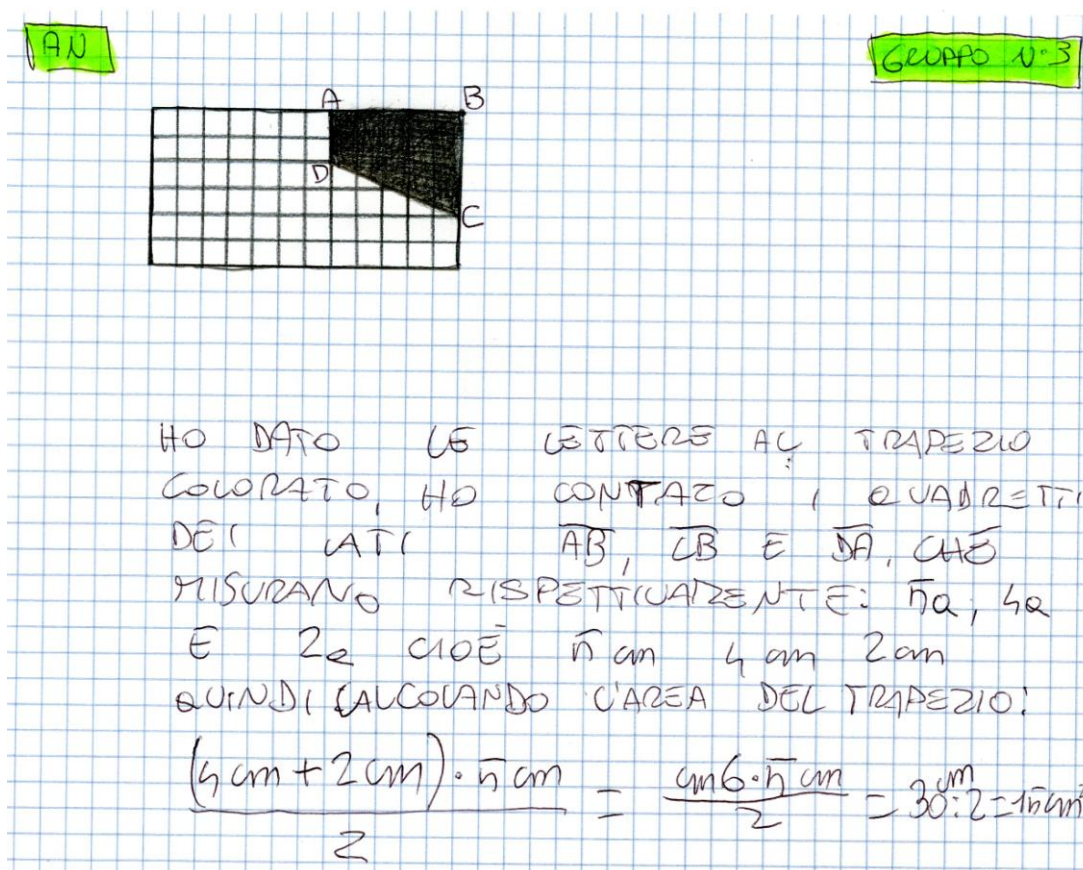 AN
GRUPPO N°3
A B
D
C
HO DATO LE LETTERE AL TRAPEZIO
COLORATO, HO CONTATO I QUADRETTI
DEI LATI AB, CB E DA, CHE
MISURANO RISPETTIVAMENTE: 5Q, 4Q
E 2Q CIOÈ 5 cm 4 cm 2 cm
QUINDI CALCOLANDO L'AREA DEL TRAPEZIO:
(4 cm + 2 cm) · 5 cm / 2 = cm 6 · 5 cm / 2 = 30 cm : 2 = 15 cm²